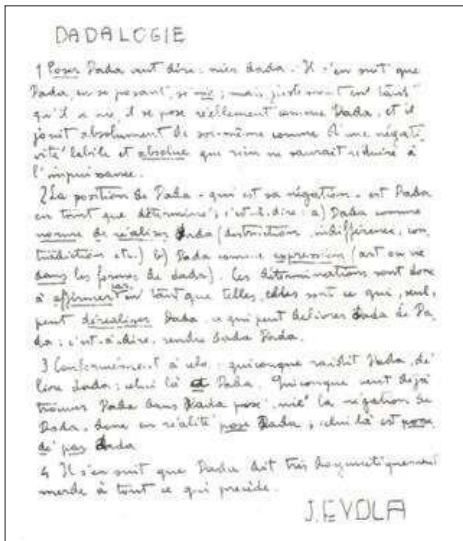 DADALOGIE
1 Poser Dada veut dire: nier dada. Il s'en suit que
Dada, en se posant, se nie; mais justement en tant
qu'il se nie, il se pose réellement comme Dada, et il
jouit absolument de soi-même comme d'une négati
vité labile et absolue que rien ne saurait réduire à
l'impuissance.
2 La position de Dada - qui est sa négation - est Dada
en tant que déterminé; c'est-à-dire: a) Dada comme
norme de réaliser dada (destruction, indifférence, con
tradiction etc.) b) Dada comme expression (art ou vie
dans les formes de dada). Ces déterminations sont donc
à affirmer car en tant que telles, elles sont ce qui, seul,
peut déréaliser Dada, ce qui peut délivrer dada de Da
da: c'est-à-dire, rendre dada Dada.
3 Conformément à cela: quiconque raidit Dada, dé
livre dada: celui là est Dada. Quiconque veut déjà
trouver Dada dans Dada posé, nie la négation de
Dada, donc en réalité pose Dada; celui là est posé
dé pas dada
4 Il s'en suit que Dada dit très dogmatiquement
merde à tout ce qui précède.
J. EVOLA